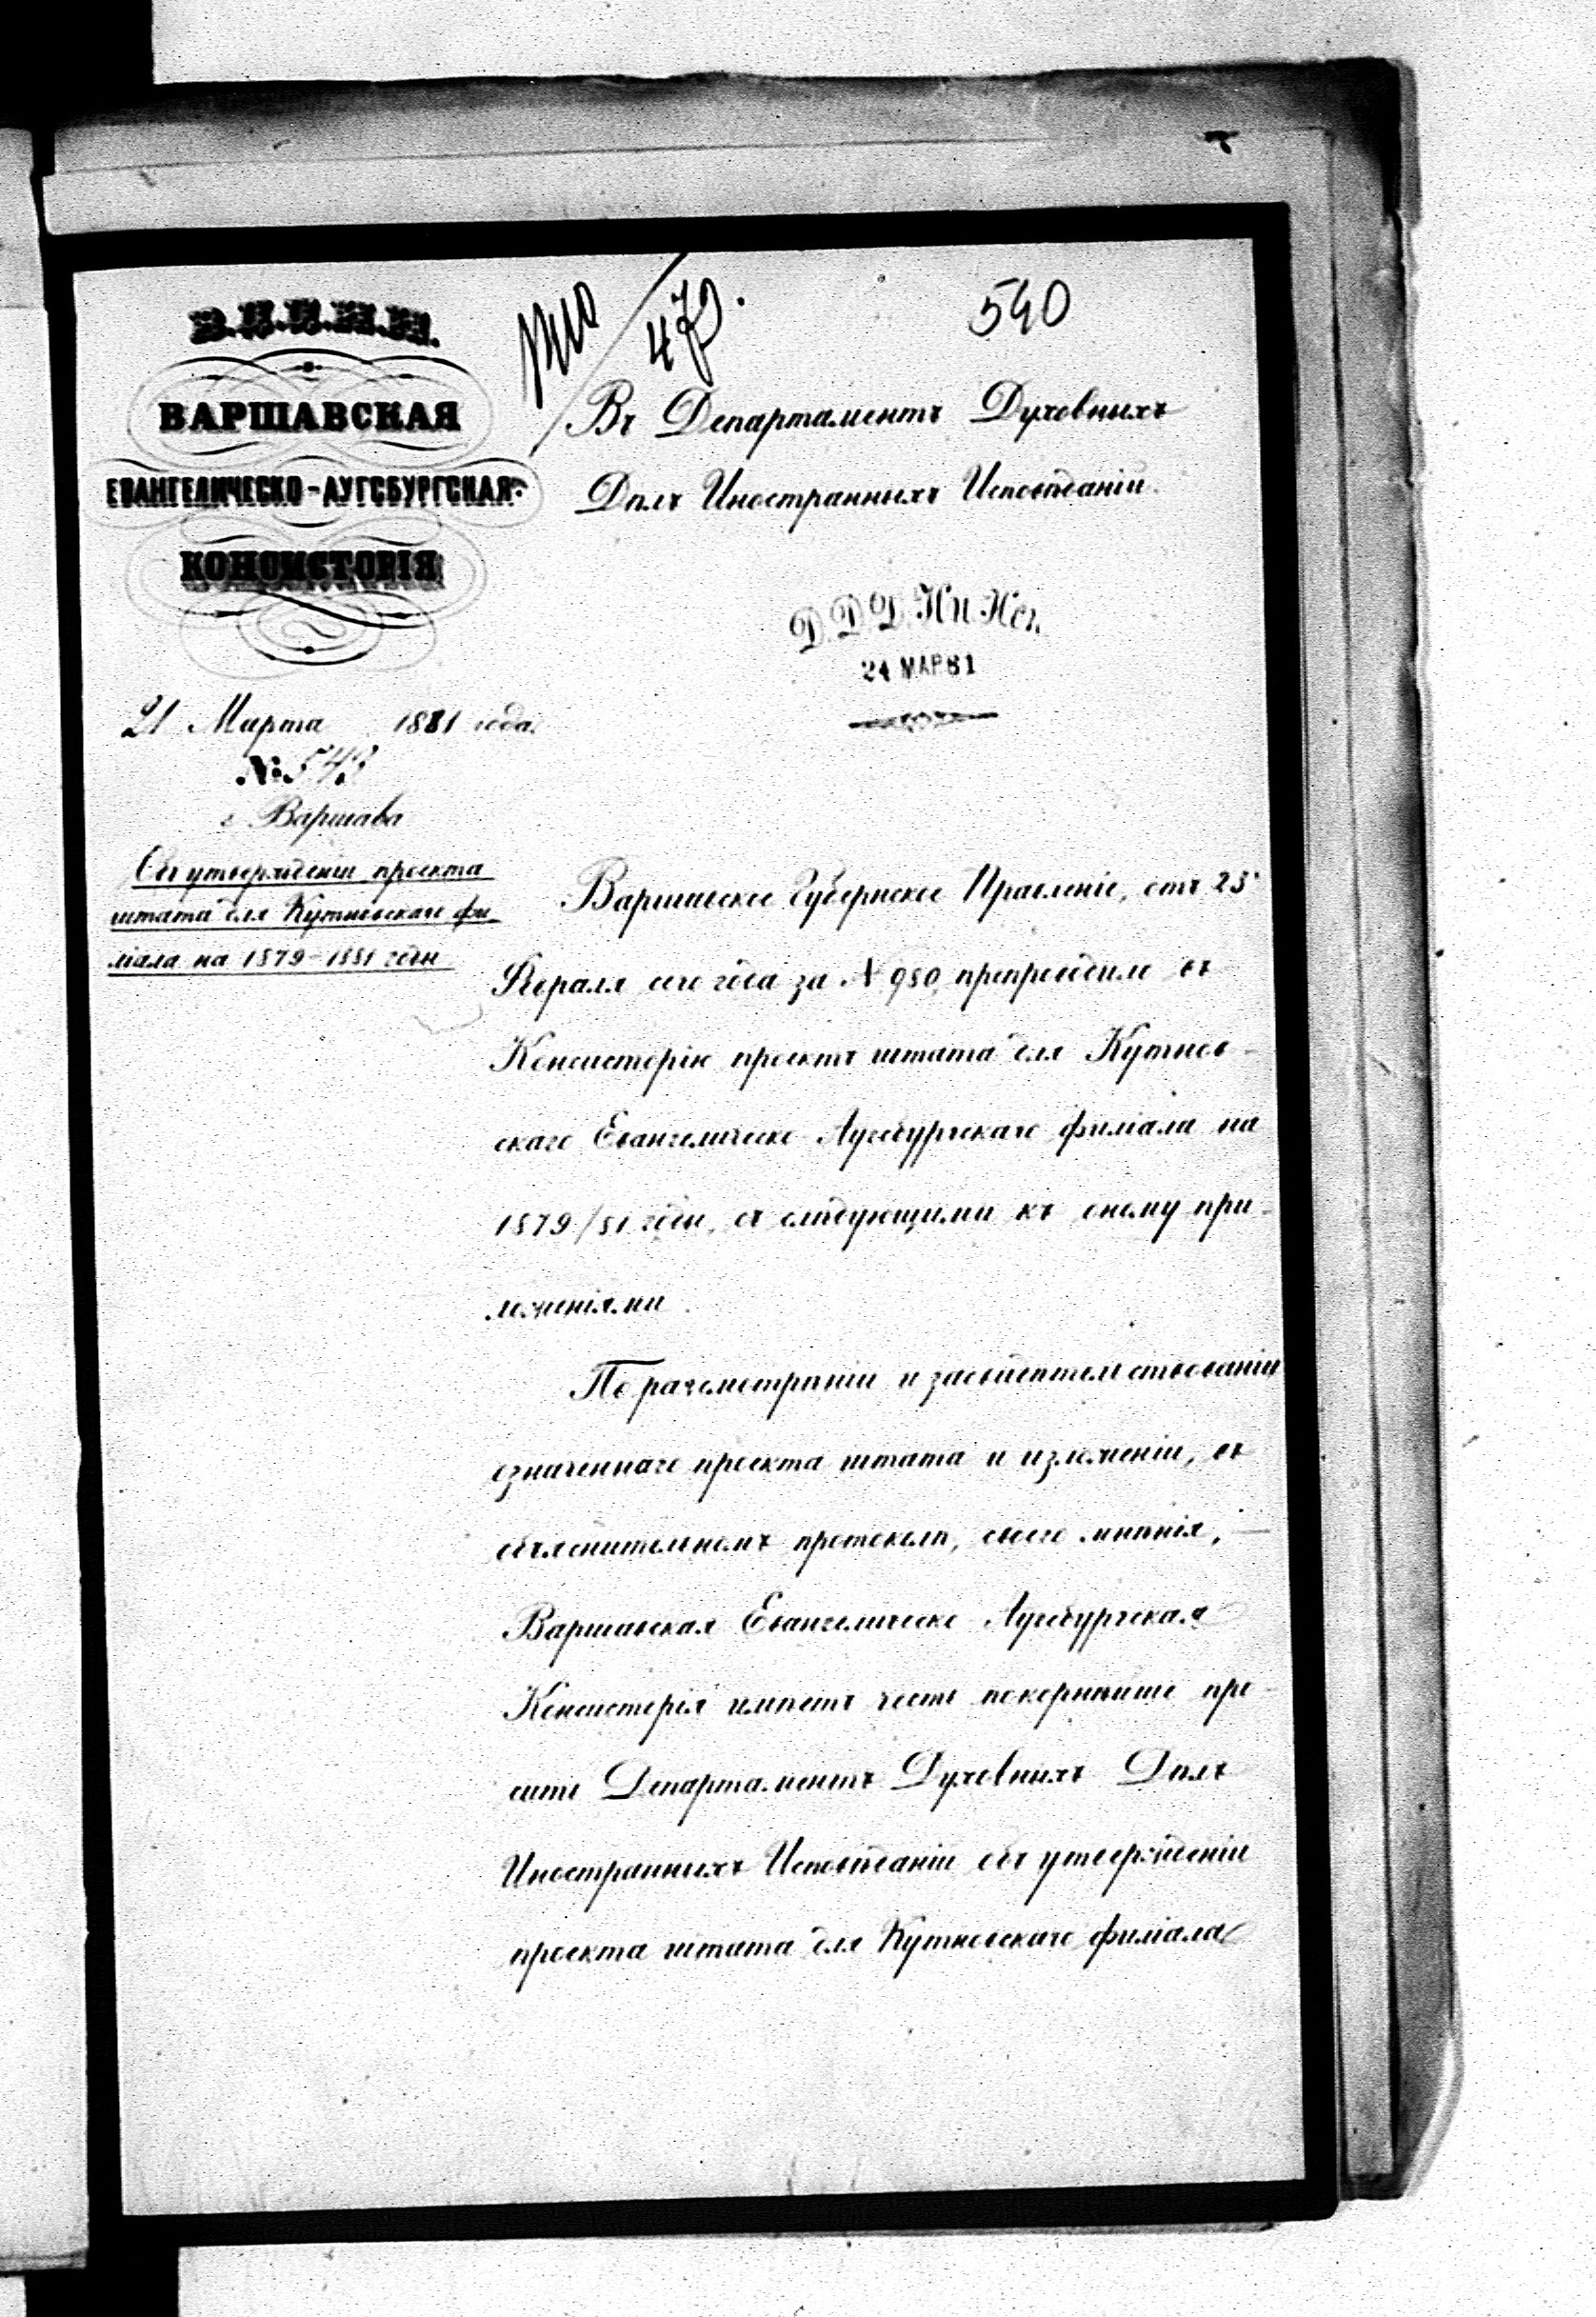 540
473.
ВАРШАВСКАЯ
ЕВАНГЕЛИЧЕСКО-АУГСБУРГСКАЯ
КОНСИСТОРІЯ
21 Марта 1881 года.
№ 543
г. Варшава
Объ утвержденіи проекта
штата для Кутновскаго фи-
ліала на 1879-1881 годы
Въ Департаментъ Духовныхъ
Дѣлъ Иностранныхъ Исповѣданій.
Д. Д. Д. Ин. Исп.
24 МАР 81
Варшавское Губернское Правленіе, отъ 25
Февраля сего года за № 980, препроводило въ
Консисторію проектъ штата для Кутнов-
скаго Евангелическо-Аугсбургскаго филіала на
1879/81 годы, съ слѣдующими къ оному при-
ложеніями.
По разсмотрѣніи и засвидѣтельствованіи
означеннаго проекта штата и изложеніи, въ
объяснительномъ протоколѣ, своего мнѣнія, —
Варшавская Евангелическо-Аугсбургская
Консисторія имѣетъ честь покорнѣйше про-
сить Департаментъ Духовныхъ Дѣлъ
Иностранныхъ Исповѣданій объ утвержденіи
проекта штата для Кутновскаго филіала